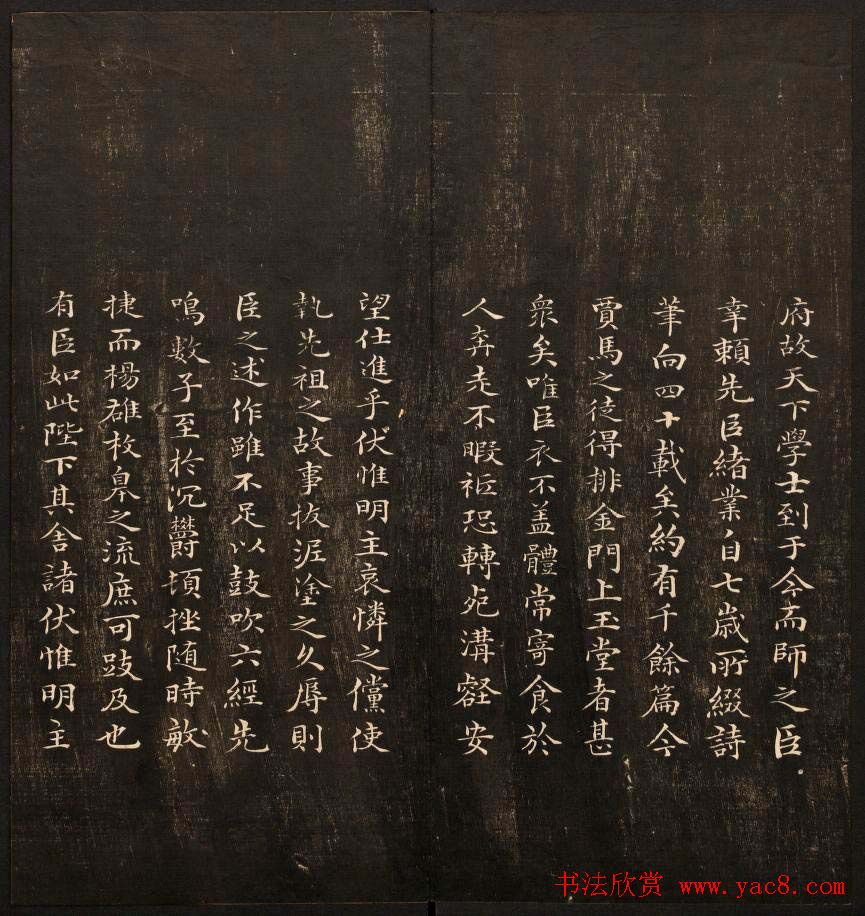 府故天下學士到于今而師之臣
幸賴先臣緒業自七歲所綴詩
筆向四十載矣約有千餘篇今
賈馬之徒得排金門上玉堂者甚
衆矣唯臣衣不盖體常寄食於
人奔走不暇秖恐轉死溝壑安
望仕進乎伏惟明主哀憐之儻使
執先祖之故事拔泥塗之久辱則
臣之述作雖不足以鼓吹六經先
鳴數子至於沉鬱頓挫随時敏
捷而楊雄枚皐之流庶可跂及也
有臣如此陛下其舍諸伏惟明主
书法欣赏 www.yac8.com